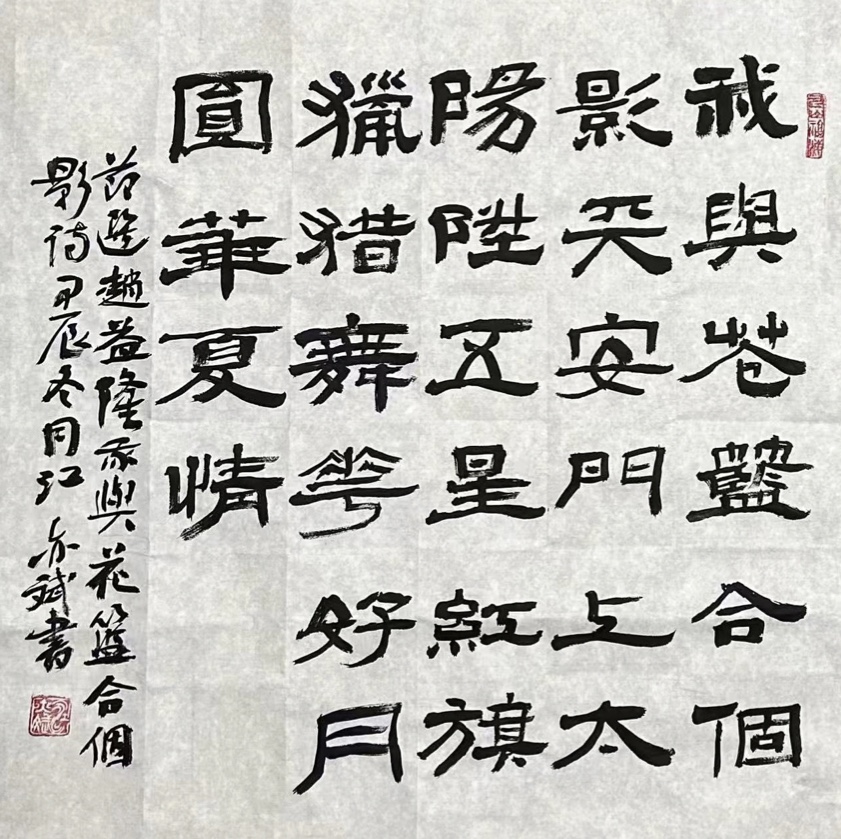 我與花籃合個
影天安門上太
陽陞五星紅旗
獵猎舞花好月
圓華夏情
節選趙益隆我與花籃合個
影詩甲辰冬月江亦斌書